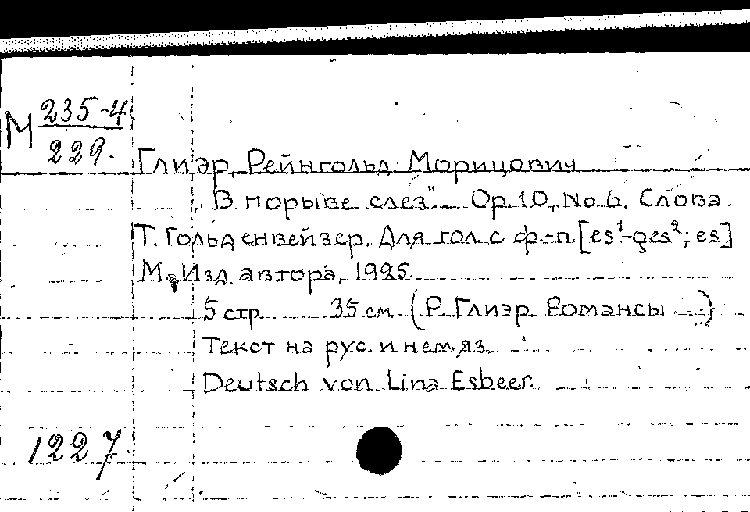 М 235-4
229.
Глиэр, Рейнгольд Морицович
"В порыве слез". Op.10, No 6. Слова
Т. Гольденвейзер. Для гол. с ф-п. [es¹-ges²; es]
М., Изд. автора, 1925.
5 стр. 35 см. (Р. Глиэр. Романсы ...)
Текст на рус. и нем. яз.
Deutsch von Lina Esbeer.
1227